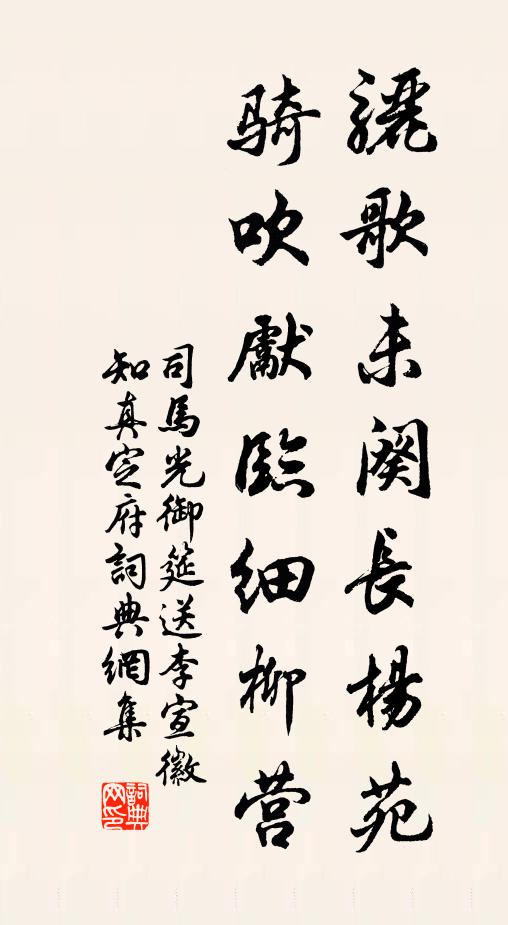 驪歌未闋長楊苑
騎吹獻臨細柳营
司馬光御筵送李宣徽
知真定府詞典網集
詞典
网印